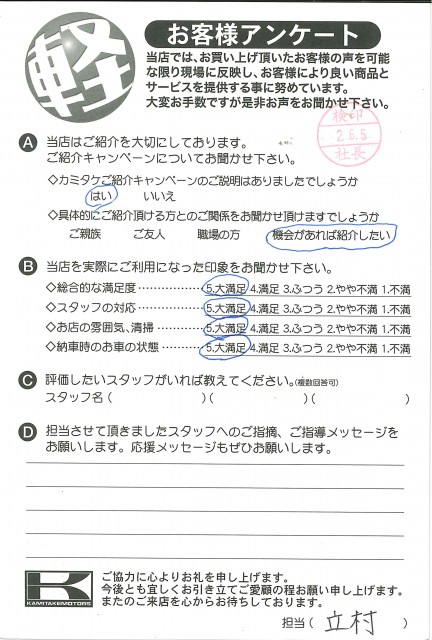 軽
お客様アンケート
当店では、お買い上げ頂いたお客様の声を可能
な限り現場に反映し、お客様により良い商品と
サービスを提供する事に努めています。
大変お手数ですが是非お声をお聞かせ下さい。
検印
2.6.5
社長
A 当店はご紹介を大切にしております。
ご紹介キャンペーンについてお聞かせ下さい。
◇カミタケご紹介キャンペーンのご説明はありましたでしょうか
はい いいえ
◇具体的にご紹介頂ける方とのご関係をお聞かせ頂けますでしょうか
ご親族 ご友人 職場の方 機会があれば紹介したい
B 当店を実際にご利用になった印象をお聞かせ下さい。
◇総合的な満足度……………5.大満足 4.満足 3.ふつう 2.やや不満 1.不満
◇スタッフの対応……………5.大満足 4.満足 3.ふつう 2.やや不満 1.不満
◇お店の雰囲気、清掃………5.大満足 4.満足 3.ふつう 2.やや不満 1.不満
◇納車時のお車の状態………5.大満足 4.満足 3.ふつう 2.やや不満 1.不満
C 評価したいスタッフがいれば教えてください。(複数回答可)
スタッフ名 ( )( )( )
D 担当させて頂きましたスタッフへのご指摘、ご指導メッセージを
お願いします。応援メッセージもぜひお願いします。
KAMITAKEMOTORS
ご協力に心よりお礼を申し上げます。
今後とも宜しくお引き立てご愛顧の程お願い申し上げます。
またのご来店を心からお待ちしております。
担当 ( 立村 )